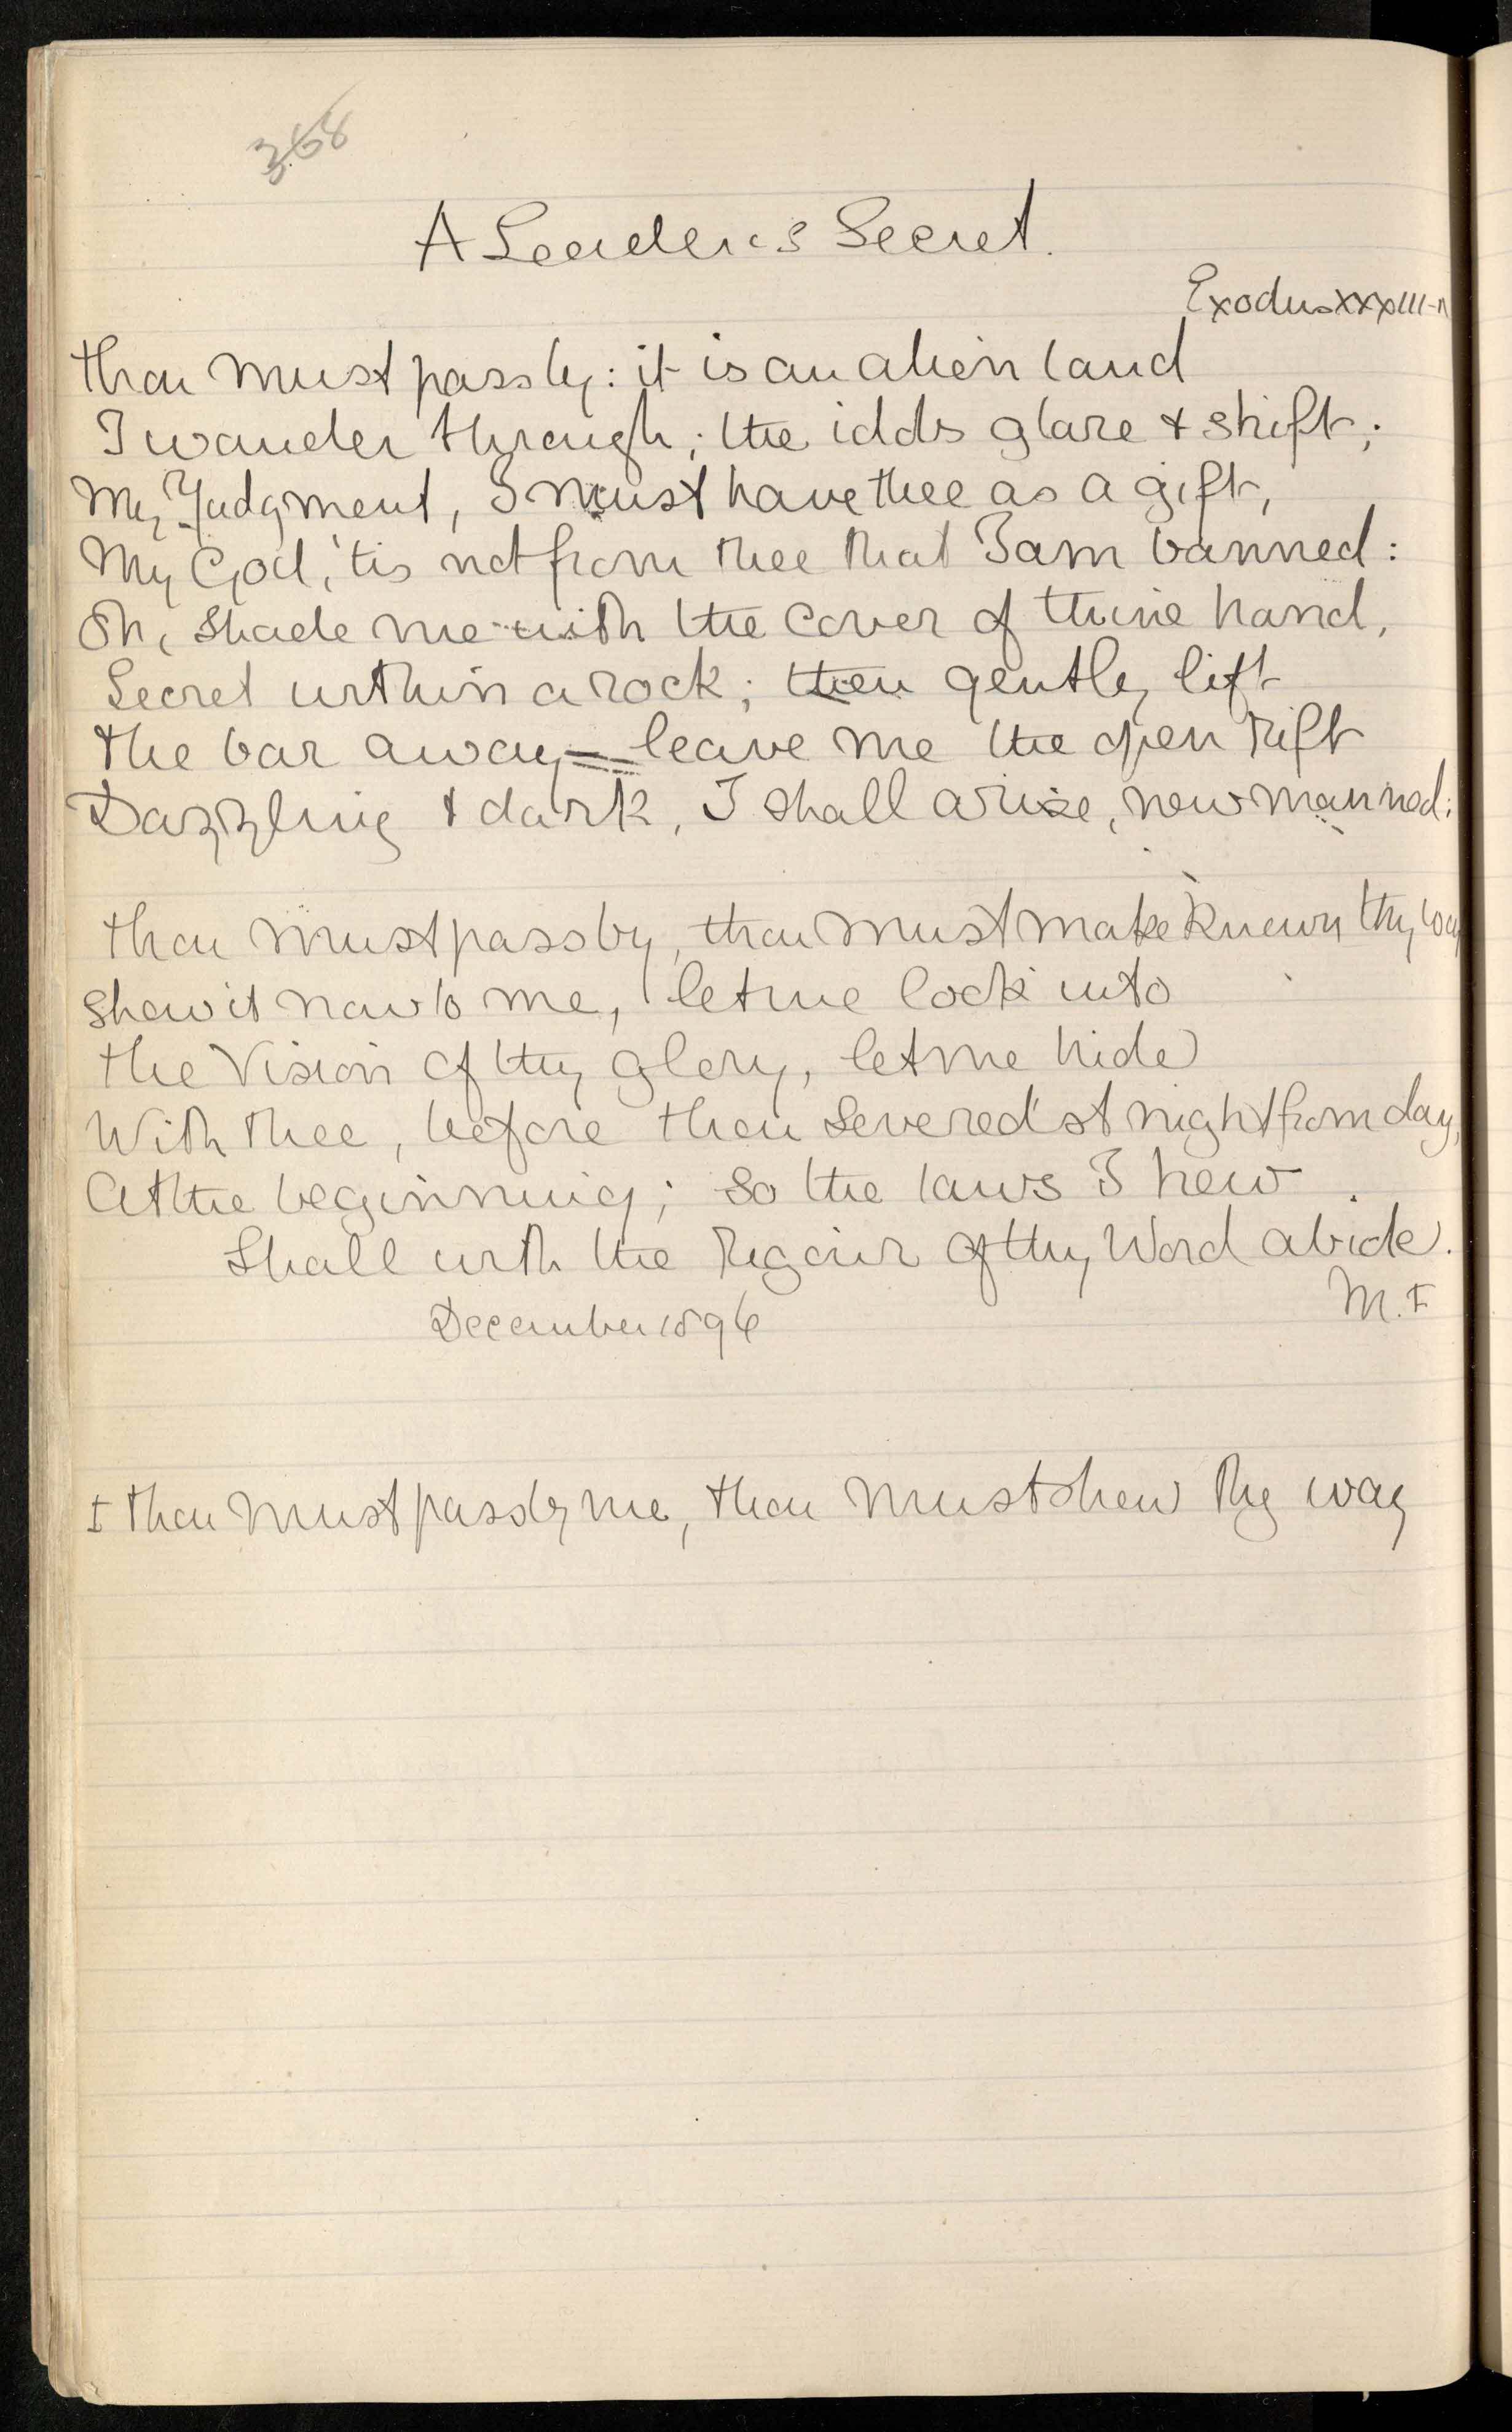 368
A Leader's Secret.
Exodus XXXIII
Thou must pass by: it is an alien land
I wander through; the idols glare & shift;
My Judgment, I must have thee as a gift,
My God, 'tis not from thee that I am banned:
Oh, shade me with the cover of thine hand,
Secret within a rock; then gently lift
The bar away = leave me the open rift
Dazzling & dark, I shall arise, new manned:
Thou must pass by, thou must make known thy way
Shew it now to me, let me look into
The Vision of thy glory, let me hide
With thee, before thou severed'st night from day,
At the beginning; so the laws I hew
Shall with the rigour of thy Word abide.
M. F
December 1896
I Thou must pass by me, thou must shew thy way